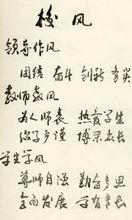 校风
领导作风
团结 奋斗 创新 务实
教师教风
为人师表 热爱学生
治学严谨 博采众长
学生学风
尊师自强 勤奋多思
全面发展 学有专长